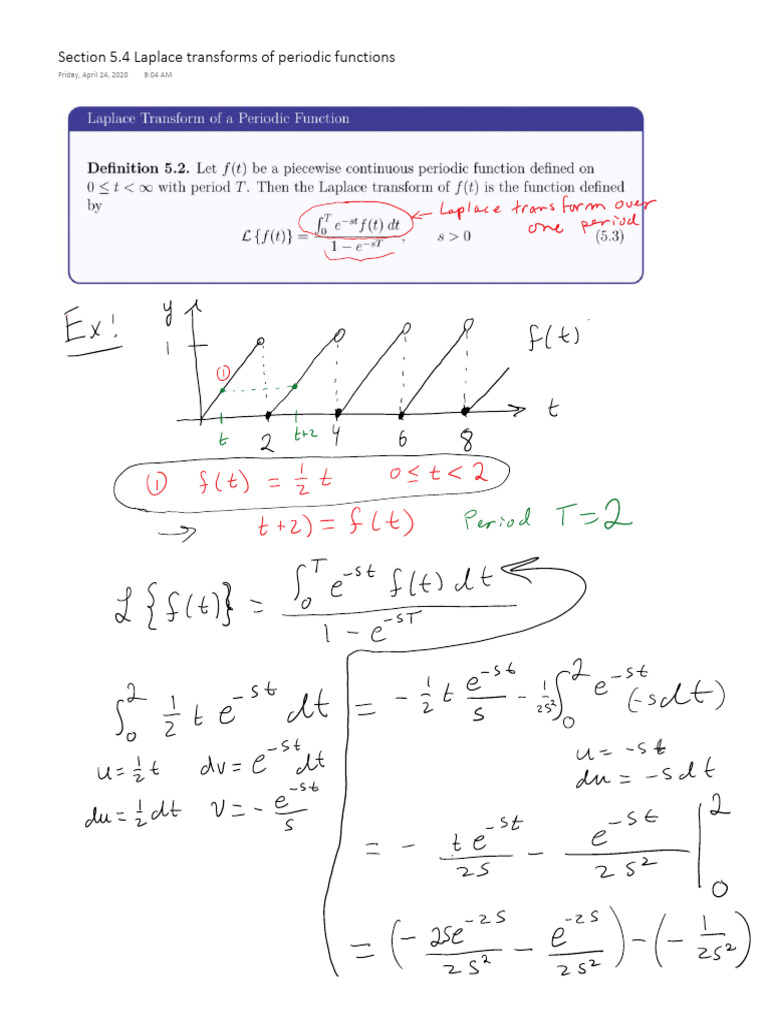 Section 5.4 Laplace transforms of periodic functions
Friday, April 24, 2020 9:04 AM
Laplace Transform of a Periodic Function
Definition 5.2. Let f(t) be a piecewise continuous periodic function defined on
0 ≤ t < ∞ with period T. Then the Laplace transform of f(t) is the function defined
by
← Laplace transform over
one period
ℒ{f(t)} = ∫₀ᵀ e^{-st} f(t) dt / (1 − e^{-sT}), s > 0 (5.3)
Ex!
y
1
①
f(t)
t 2 t+2 4 6 8 t
① f(t) = 1/2 t 0 ≤ t < 2
→ t+2) = f(t) Period T = 2
ℒ{f(t)} = ∫₀ᵀ e^{-st} f(t) dt / (1 − e^{-sT})
∫₀² 1/2 t e^{-st} dt = − 1/2 t e^{-st}/s − 1/(2s²) ∫₀² e^{-st} (-s dt)
u = 1/2 t dv = e^{-st} dt
u = -st
du = 1/2 dt v = − e^{-st}/s
du = -s dt
= − t e^{-st}/(2s) − e^{-st}/(2s²) |₀²
= (− 2s e^{-2s}/(2s²) − e^{-2s}/(2s²)) − (− 1/(2s²))